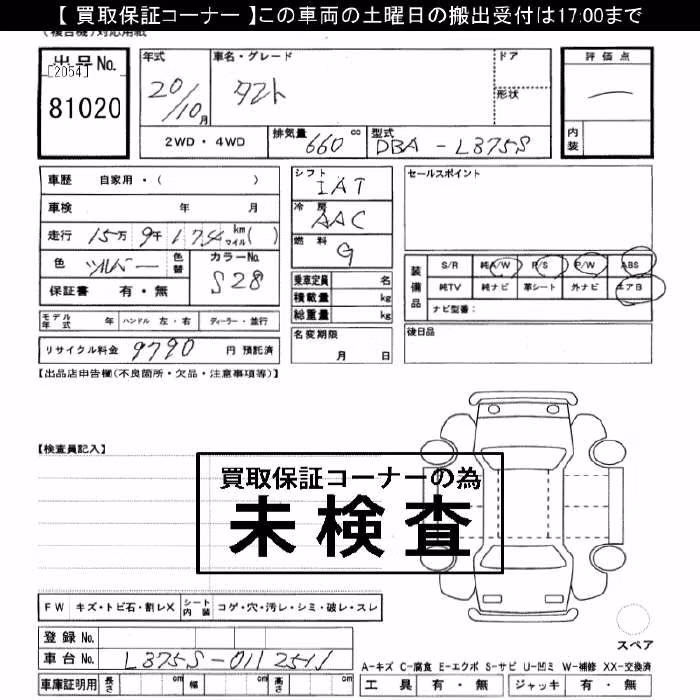 【 買取保証コーナー 】この車両の土曜日の搬出受付は17:00まで
(複合機)対応用紙
出品No. [2054] 81020
年式 20/10月
車名・グレード タント
ドア
形状
2WD・4WD
排気量 660 cc
型式 DBA-L375S
評価点
内装
車歴 自家用・( )
車検 年 月
走行 15万 9千 1 7 5 4 km マイル( )
色 シルバー 色替 カラーNo. S28
保証書 有・無
シフト IAT
冷房 AAC
燃料 G
乗車定員 名
積載量 kg
総重量 kg
セールスポイント
装備品
S/R 純A/W P/S P/W ABS
純TV 純ナビ 革シート 外ナビ エアB
ナビ型番:
モデル年式 年 ハンドル 左・右 ディーラー・並行
リサイクル料金 9790 円 預託済
名変期限 月 日
後日品
【出品店申告欄(不良箇所・欠品・注意事項等)】
【検査員記入】
買取保証コーナーの為
未検査
FW キズ・トビ石・割レX シート内装 コゲ・穴・汚レ・シミ・破レ・スレ
スペア
登録No.
車台No. L375S-011
車庫証明用 長さ cm 幅 cm 高さ cm
A-キズ C-腐食 E-エクボ S-サビ U-凹ミ W-補修 XX-交換済
工具 有・無 ジャッキ 有・無